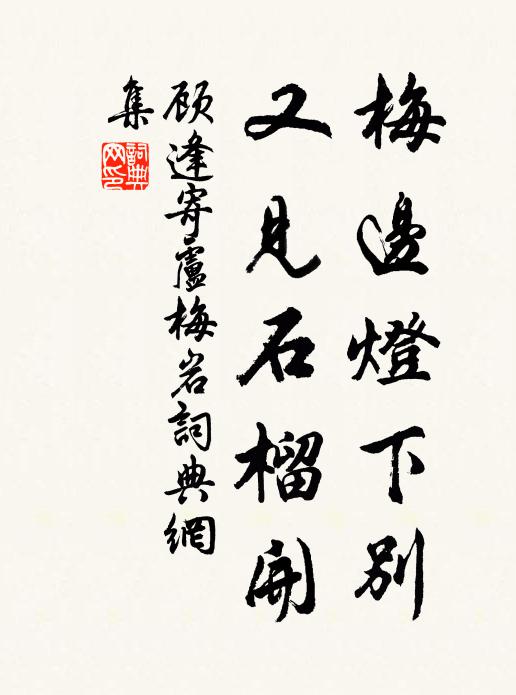 梅邊燈下別
又見石榴開
顾逢寄盧梅岩詞典網
集
詞典网印